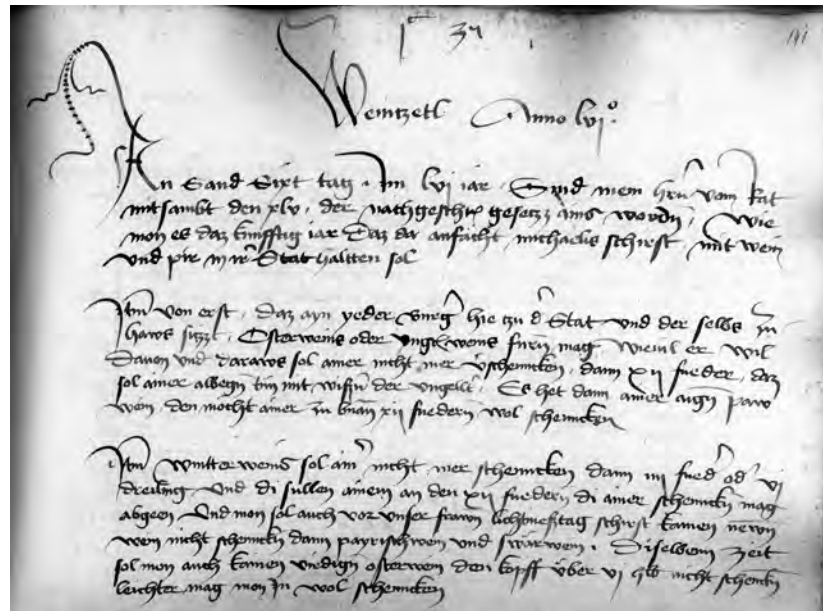 191
Weintzetl Anno lvjo
An Sand Sixt tag im lvj iar Sind mein hrn vom Rat
mitsambt den xlv der nachgeschr gesetz ains wordn Wie
mon es daz kunfftig iar daz da anfächt michaelis schirst mit wein
und pir in ir Stat haltten sol
Itm von erst daz ayn yeder burgr hie zu dr Stat und der selbs zu
haws sitzt Osterweins oder ungerweins furn mag wievil er wil
Davon und daraws sol ainer nicht mer vschennckn dann xij fueder daz
sol ainer albegn tun mit wissn der ungeltr Es het dann ainer aign paw
wein den möcht ainer zu den xij fuedern wol schenncken
Itm wintterweins sol ainr nicht mer schenncken dann iij fuedr odr vj
dreiling Und di sullen ainem an den xij fuedern di ainer schennckn mag
abgeen Und mon sol auch vor unser frawn lichtmeßtag schirst kainen newn
wein nicht schennckn dann payrischwein und swarwein Dieselben zeit
sol mon auch kainen virdign osterwein den kopff über vj hlb nicht schennckn
leichter mag mon in wol schenncken